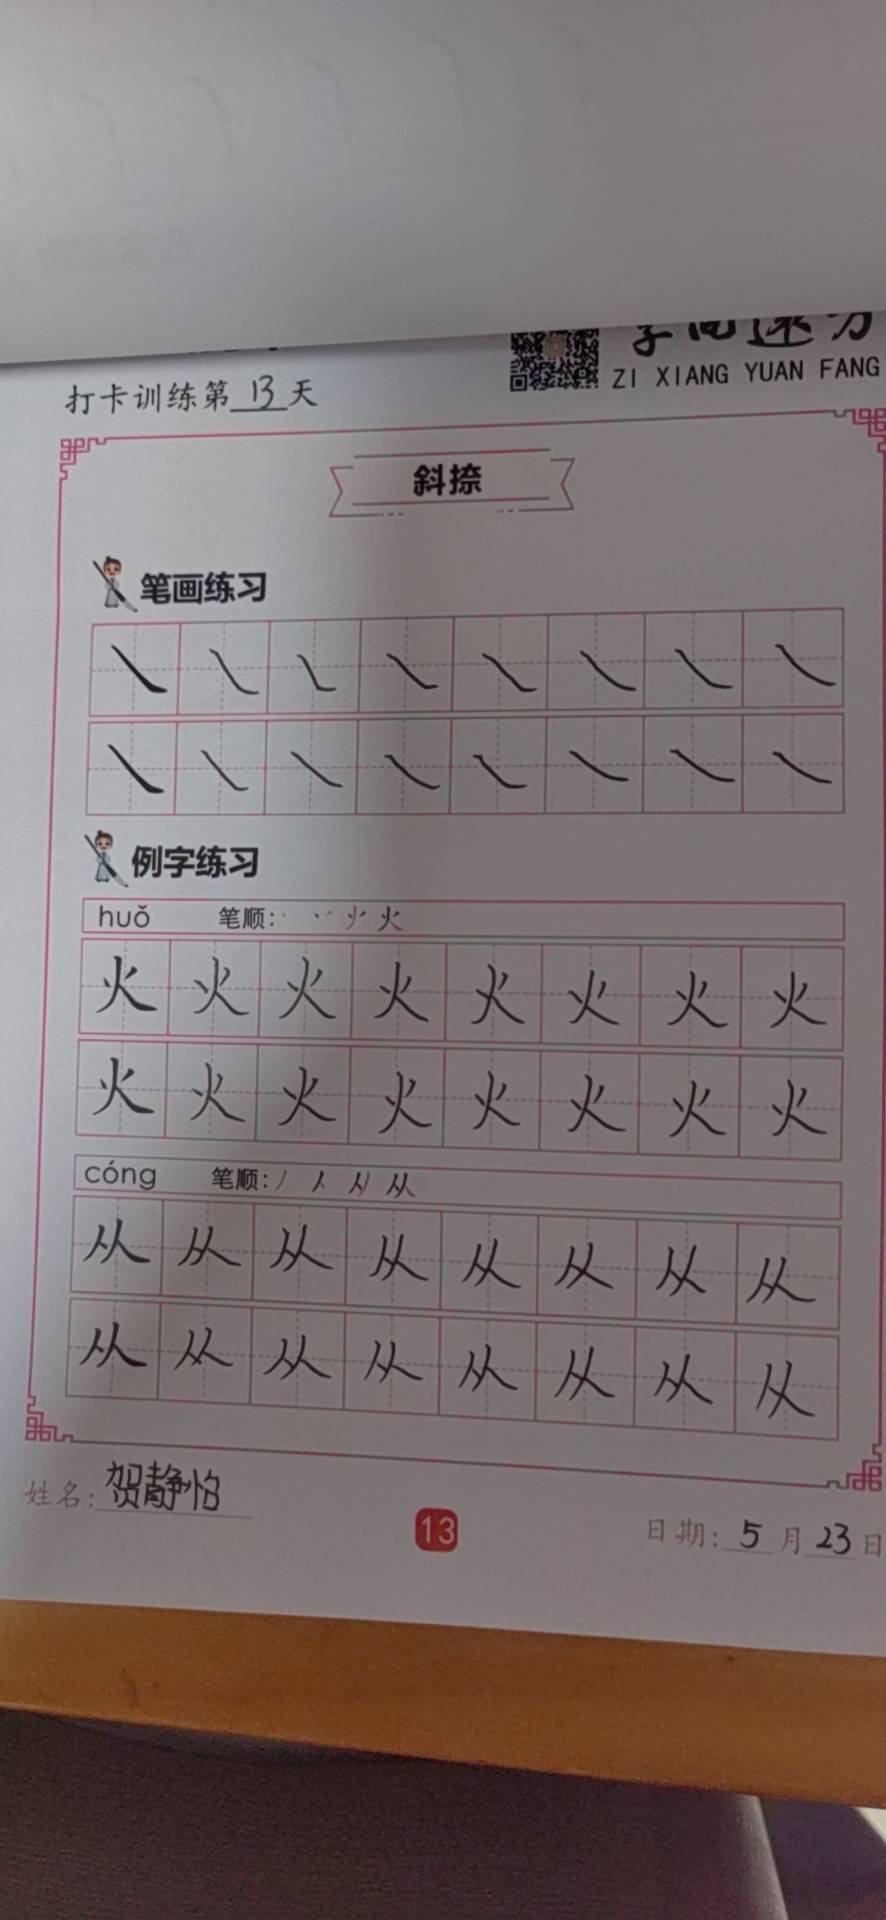 打卡训练第13天
ZI XIANG YUAN FANG
斜捺
笔画练习
例字练习
huǒ 笔顺: 火
火火火火火火火火
火火火火火火火火
cóng 笔顺: 从
从从从从从从从从
从从从从从从从从
姓名: 贺静怡
13
日期: 5月23日